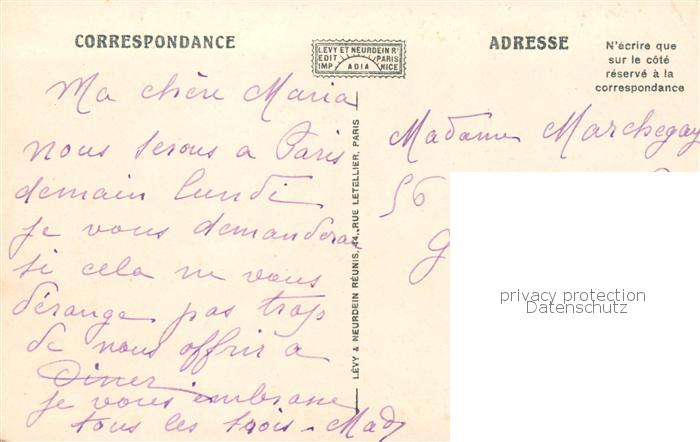 CORRESPONDANCE
LÉVY ET NEURDEIN Rs
EDIT PARIS
IMP. ADIA NICE
ADRESSE
N'écrire que
sur le côté
réservé à la
correspondance
Ma chère Maria
nous serons a Paris
demain lundi
je vous demanderai
si cela ne vous
dérange pas trop
de nous offrir a
Diner
je vous embrasse
tous les trois - Mady
LÉVY & NEURDEIN RÉUNIS, 44, RUE LETELLIER, PARIS
Madame Marchegay
56
G
privacy protection
Datenschutz